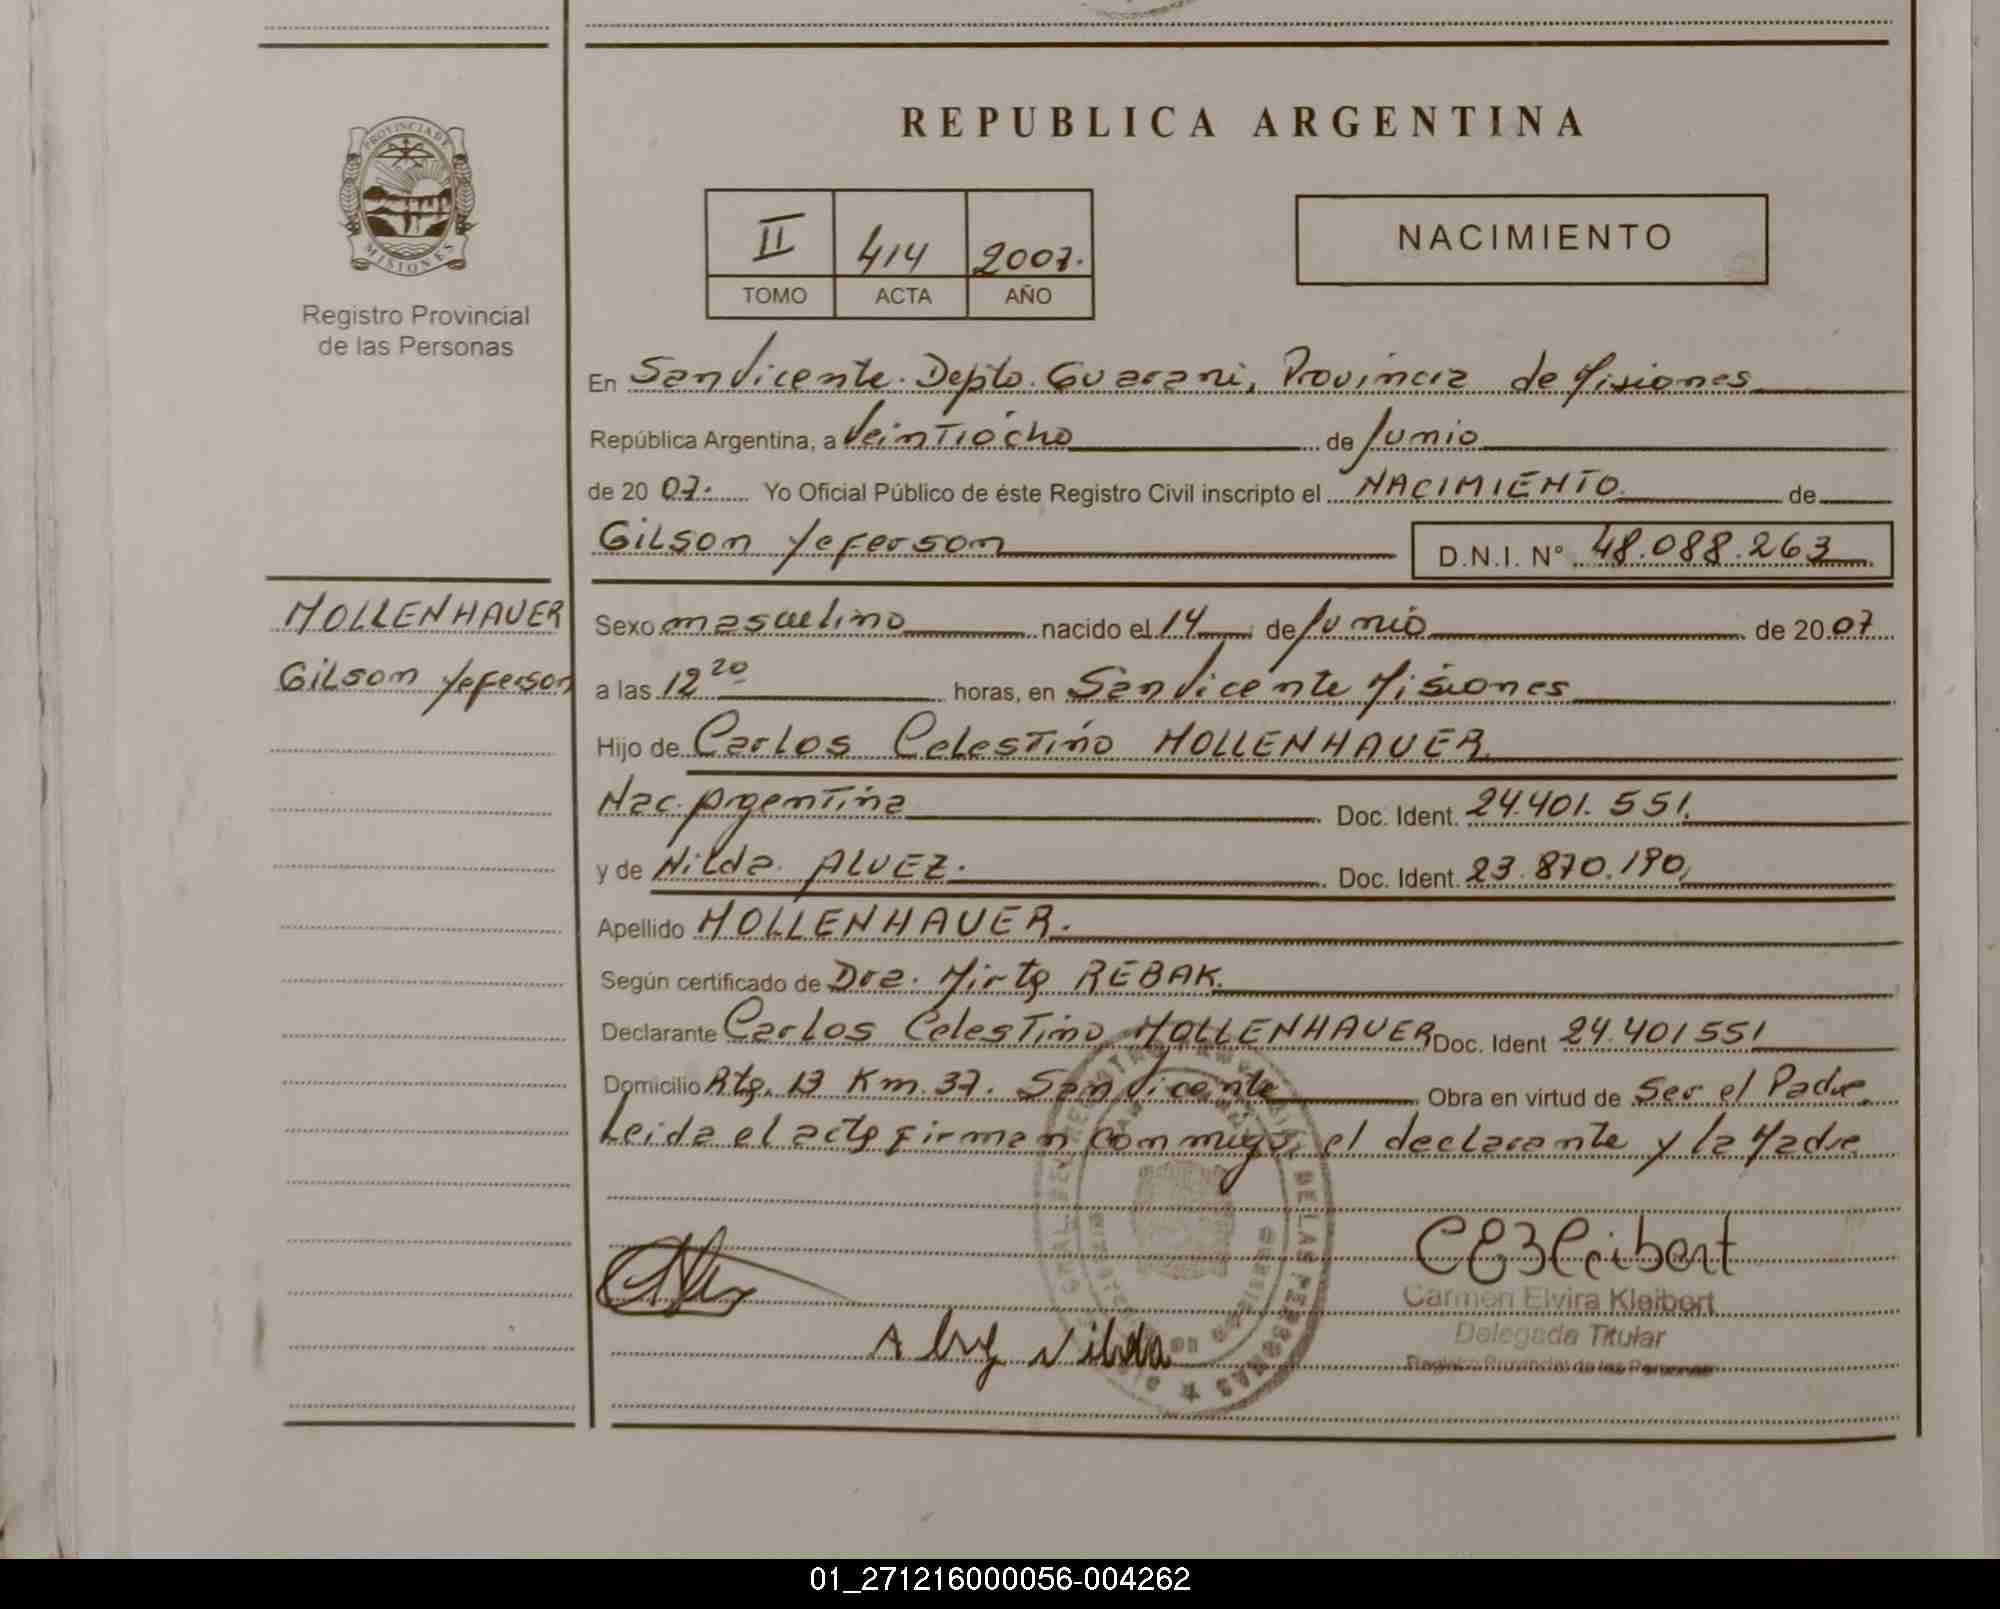 REPUBLICA ARGENTINA
PROVINCIA DE
MISIONES
Registro Provincial
de las Personas
II 414 2007.
TOMO ACTA AÑO
NACIMIENTO
En San Vicente. Depto. Guarani, Provincia de Misiones
República Argentina, a Veintiocho de Junio
de 20 07. Yo Oficial Público de éste Registro Civil inscripto el NACIMIENTO de
Gilson Yeferson D.N.I. N° 48.088.263
MOLLENHAUER
Gilson Yeferson
Sexo masculino nacido el 14 de Junio de 20 07
a las 12 20 horas, en San Vicente Misiones
Hijo de Carlos Celestino MOLLENHAUER
Nac. Argentina Doc. Ident. 24.401.551.
y de Nilda ALVEZ. Doc. Ident. 23.870.190,
Apellido MOLLENHAUER.
Según certificado de Dra. Mirta REBAK.
Declarante Carlos Celestino MOLLENHAUER Doc. Ident 24.401551
Domicilio Rta. 13 Km. 37. San Vicente Obra en virtud de Ser el Padre.
Leida el acta firman conmigo, el declarante y la Madre
C E Kleibert
Carmen Elvira Kleibert
Delegada Titular
Registro Provincial de las Personas
Nilda
DE LAS PERSONAS
01_271216000056-004262